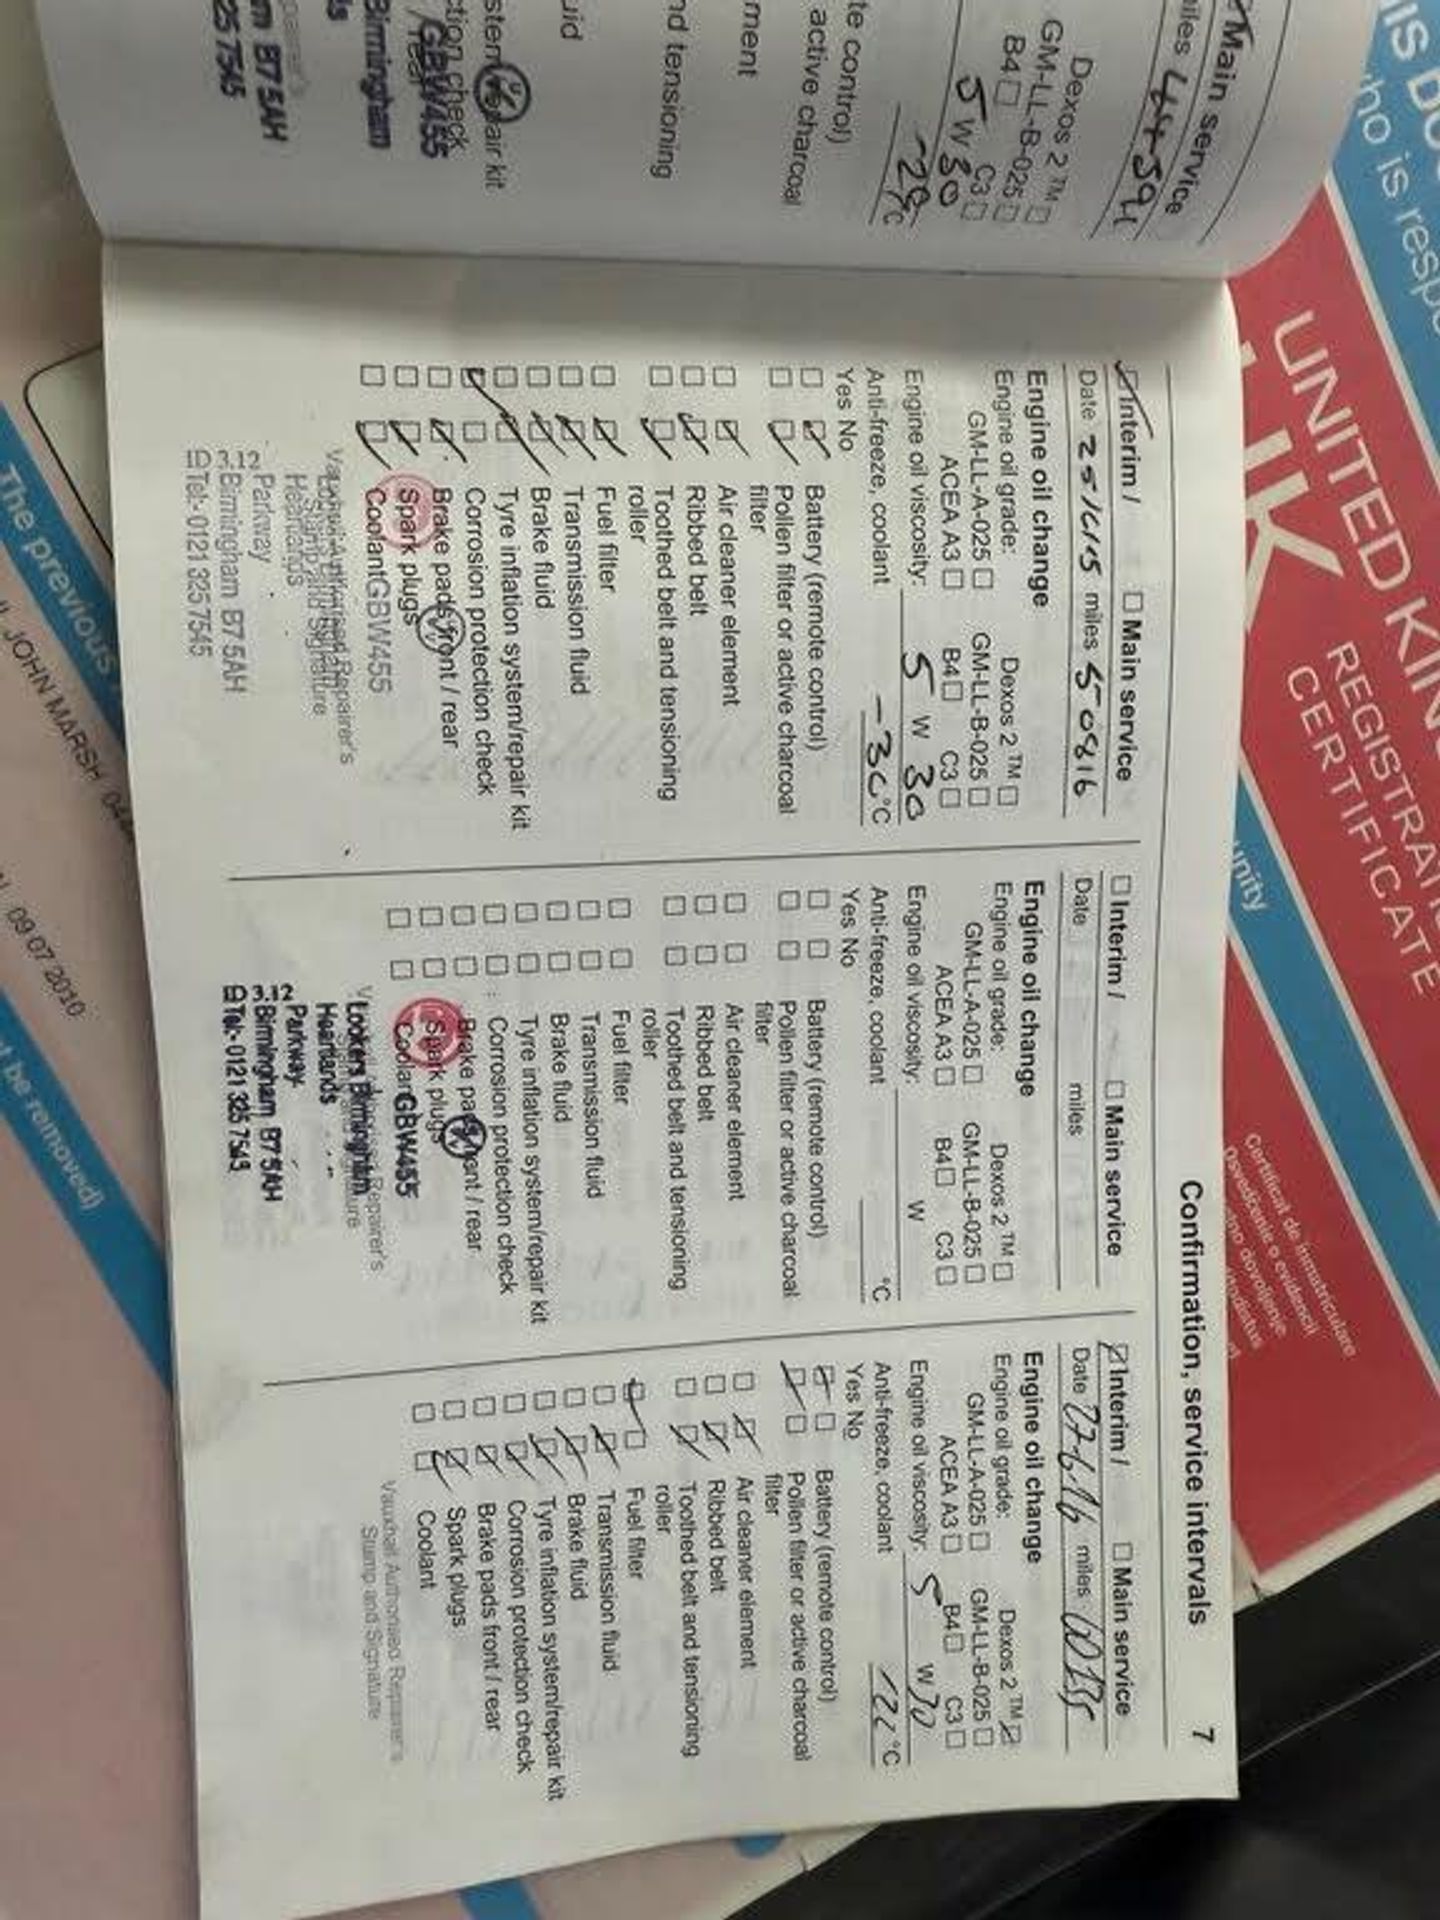 Main service
miles 44594
Dexos 2 ™ □
GM-LL-B-025 □
B4 □ C3 □
5 W 30
°C
te control)
active charcoal
ment
nd tensioning
uid
stem/repair kit
ction check
GBW455
Birmingham
m B7 5AH
25 7545
Confirmation, service intervals 7
Interim / □ Main service
Date 25/6/15 miles 50816
Engine oil change
Engine oil grade: Dexos 2 ™ □
GM-LL-A-025 □ GM-LL-B-025 □
ACEA A3 □ B4 □ C3 □
Engine oil viscosity: 5 W 30
Anti-freeze, coolant °C
Yes No
Battery (remote control)
Pollen filter or active charcoal
filter
Air cleaner element
Ribbed belt
Toothed belt and tensioning
roller
Fuel filter
Transmission fluid
Brake fluid
Tyre inflation system/repair kit
Corrosion protection check
Brake pads front / rear
Spark plugs
Coolant GBW455
Vauxhall Authorised Repairer's
Stamp and Signature
Heartlands
Parkway
3.12 Birmingham B7 5AH
Tel:- 0121 325 7545
□ Interim / □ Main service
Date miles
Engine oil change
Engine oil grade: Dexos 2 ™ □
GM-LL-A-025 □ GM-LL-B-025 □
ACEA A3 □ B4 □ C3 □
Engine oil viscosity: W
Anti-freeze, coolant °C
Yes No
□ □ Battery (remote control)
□ □ Pollen filter or active charcoal
filter
□ □ Air cleaner element
□ □ Ribbed belt
□ □ Toothed belt and tensioning
roller
□ □ Fuel filter
□ □ Transmission fluid
□ □ Brake fluid
□ □ Tyre inflation system/repair kit
□ □ Corrosion protection check
□ □ Brake pads front / rear
□ □ Spark plugs
□ □ Coolant GBW455
Repairer's
Lookers Birmingham
Heartlands
Parkway
3.12 Birmingham B7 5AH
Tel:- 0121 325 7545
Interim / □ Main service
Date 27-6-16 miles
Engine oil change
Engine oil grade: Dexos 2 ™
GM-LL-A-025 □ GM-LL-B-025 □
ACEA A3 □ B4 □ C3 □
Engine oil viscosity: 5 W 30
Anti-freeze, coolant °C
Yes No
Battery (remote control)
Pollen filter or active charcoal
filter
Air cleaner element
Ribbed belt
Toothed belt and tensioning
roller
Fuel filter
Transmission fluid
Brake fluid
Tyre inflation system/repair kit
Corrosion protection check
Brake pads front / rear
Spark plugs
Coolant
Vauxhall Authorised Repairer's
Stamp and Signature
UNITED KIN
UK
REGISTRAT
CERTIFICATE
unity
Certificat de inmatriculare
Osvedčenie o evidencii
no dovoljenje
IS DO
ho is respo
The previous
JOHN MARSH
09 07 2010
t be removed)